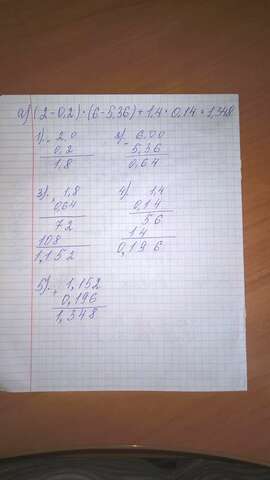 а) (2-0,2)·(6-5,36)+1,4·0,14=1,348
1) - 2,0
0,2
1,8
2) - 6,00
5,36
0,64
3) × 1,8
0,64
72
108
1,152
4) 1,4
0,14
56
14
0,196
5) + 1,152
0,196
1,348